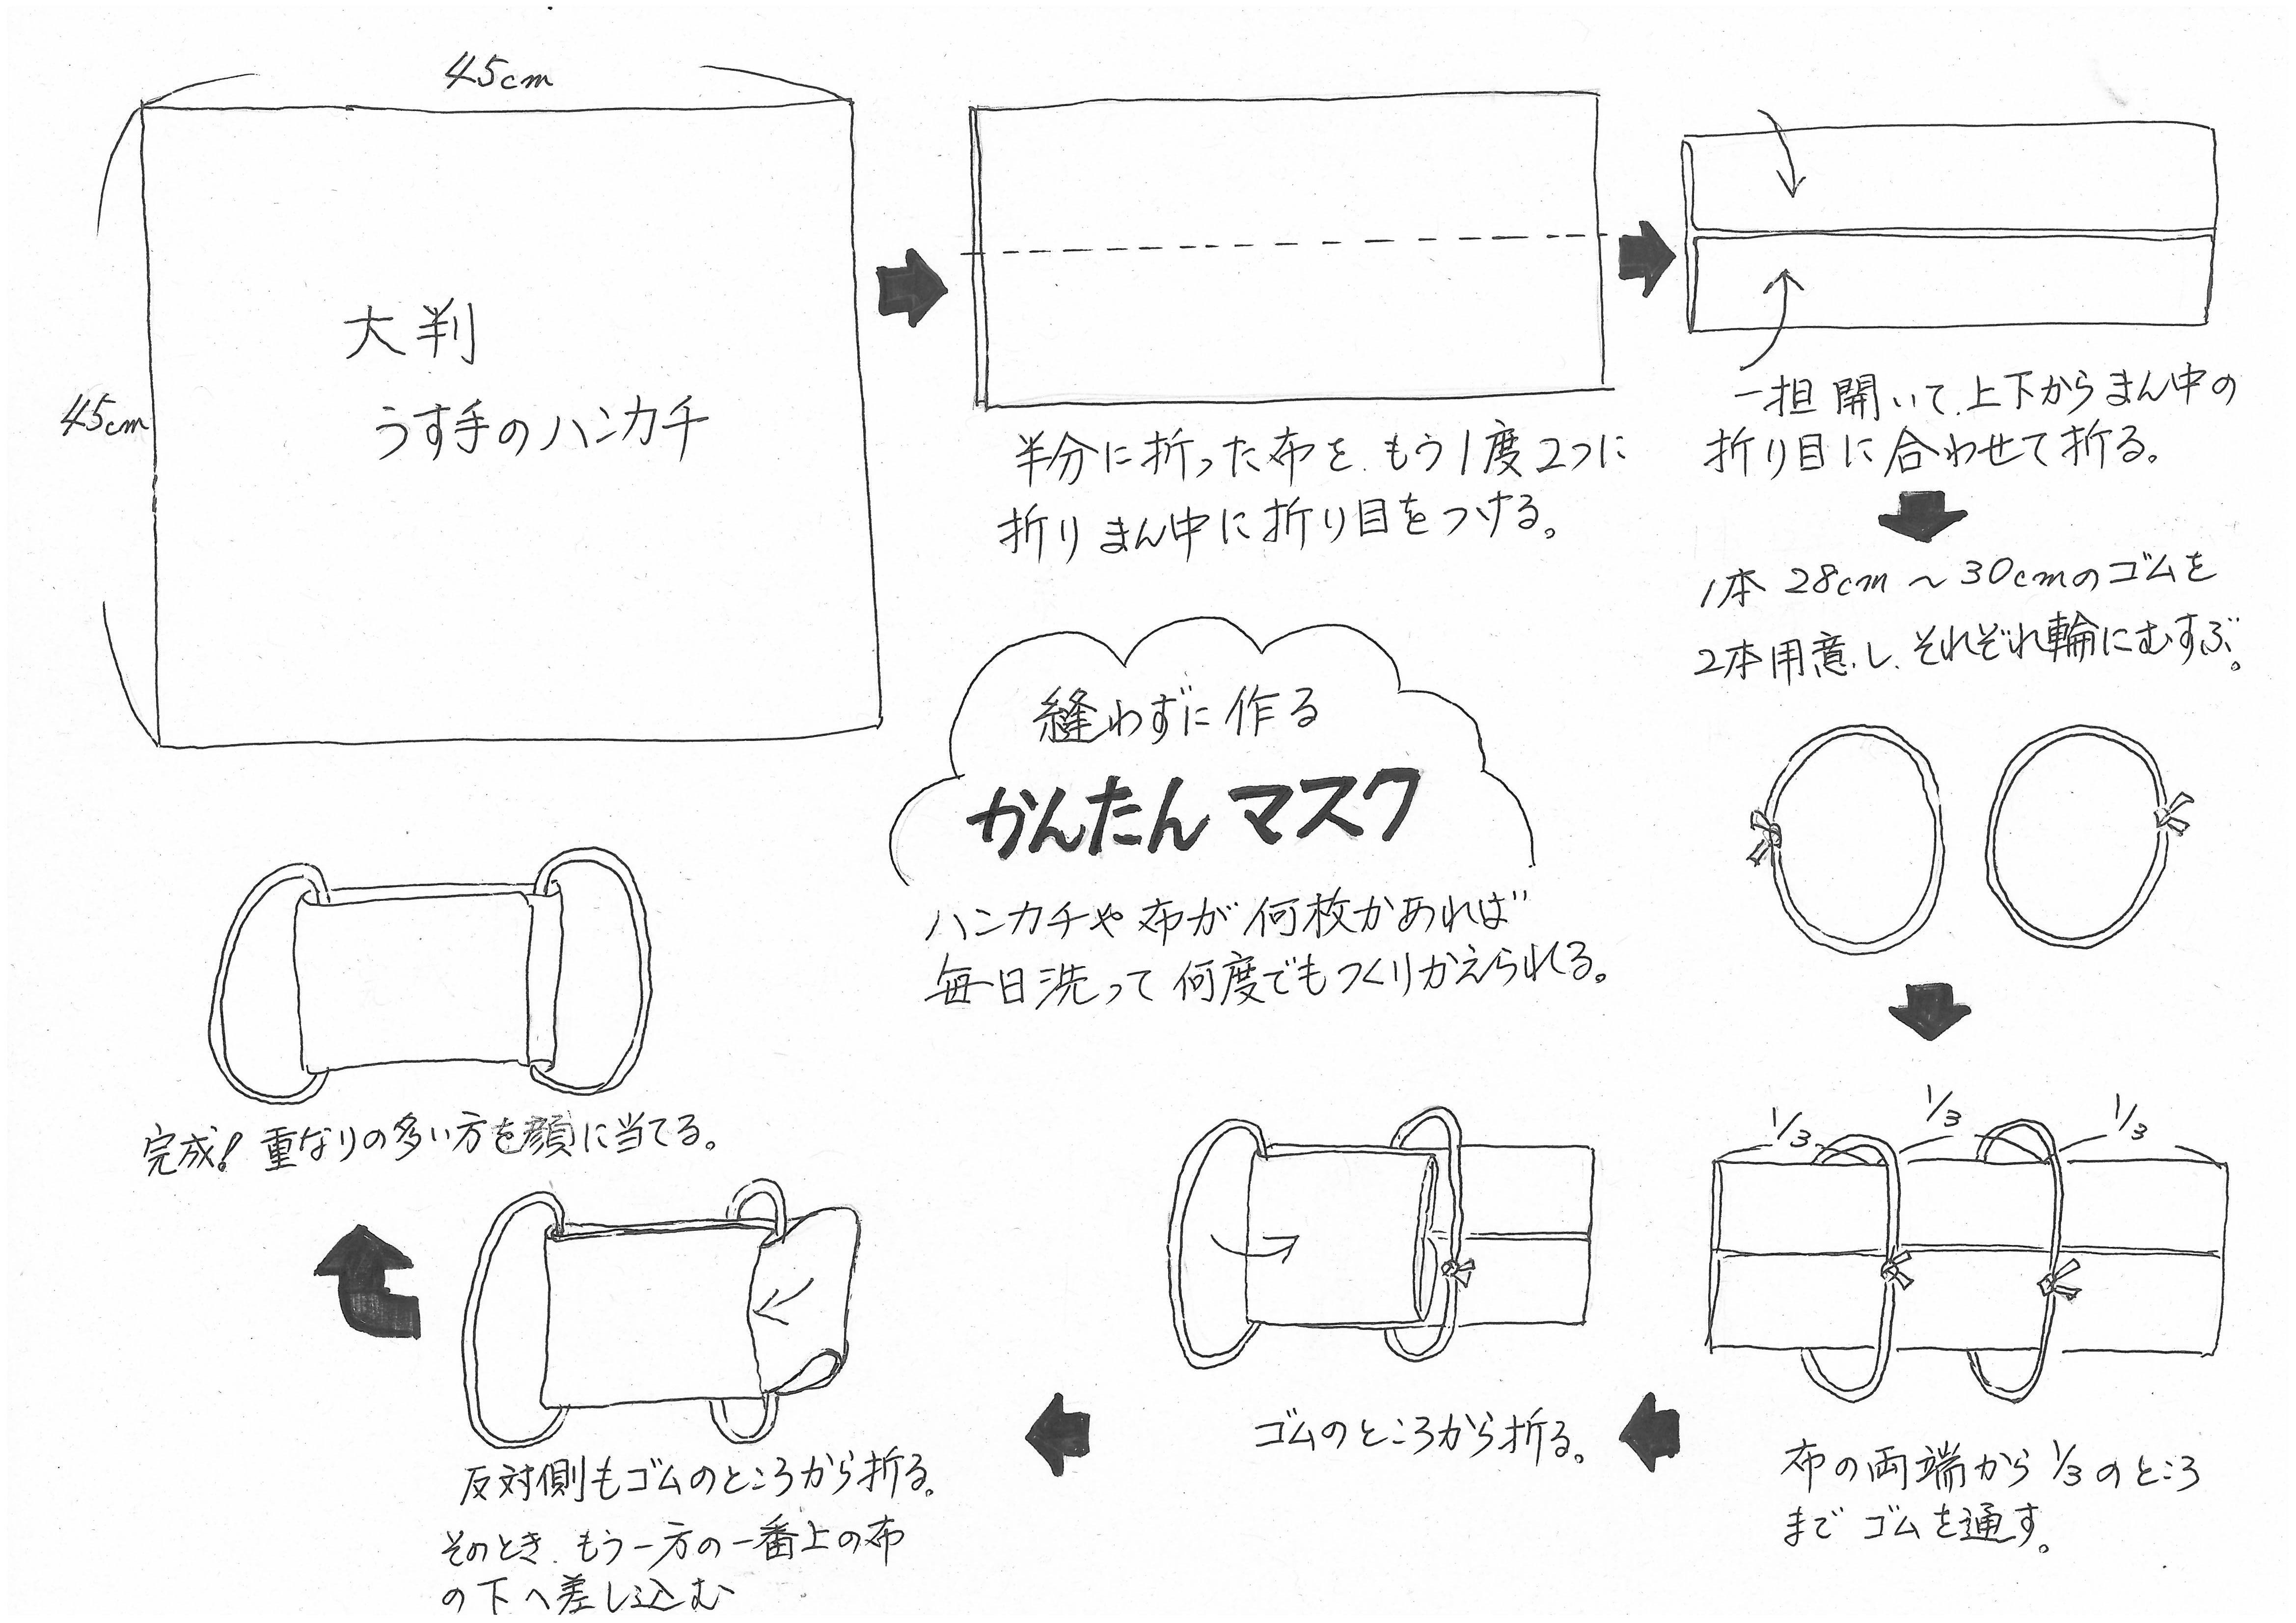 45cm
45cm
大判
うす手のハンカチ
半分に折った布を、もう1度2つに
折りまん中に折り目をつける。
一担開いて、上下からまん中の
折り目に合わせて折る。
1本28cm～30cmのゴムを
2本用意し、それぞれ輪にむすぶ。
縫わずに作る
かんたんマスク
ハンカチや布が何枚かあれば
毎日洗って何度でもつくりかえられる。
1/3 1/3 1/3
布の両端から1/3のところ
までゴムを通す。
ゴムのところから折る。
反対側もゴムのところから折る。
そのとき、もう一方の一番上の布
の下へ差し込む
完成！重なりの多い方を顔に当てる。